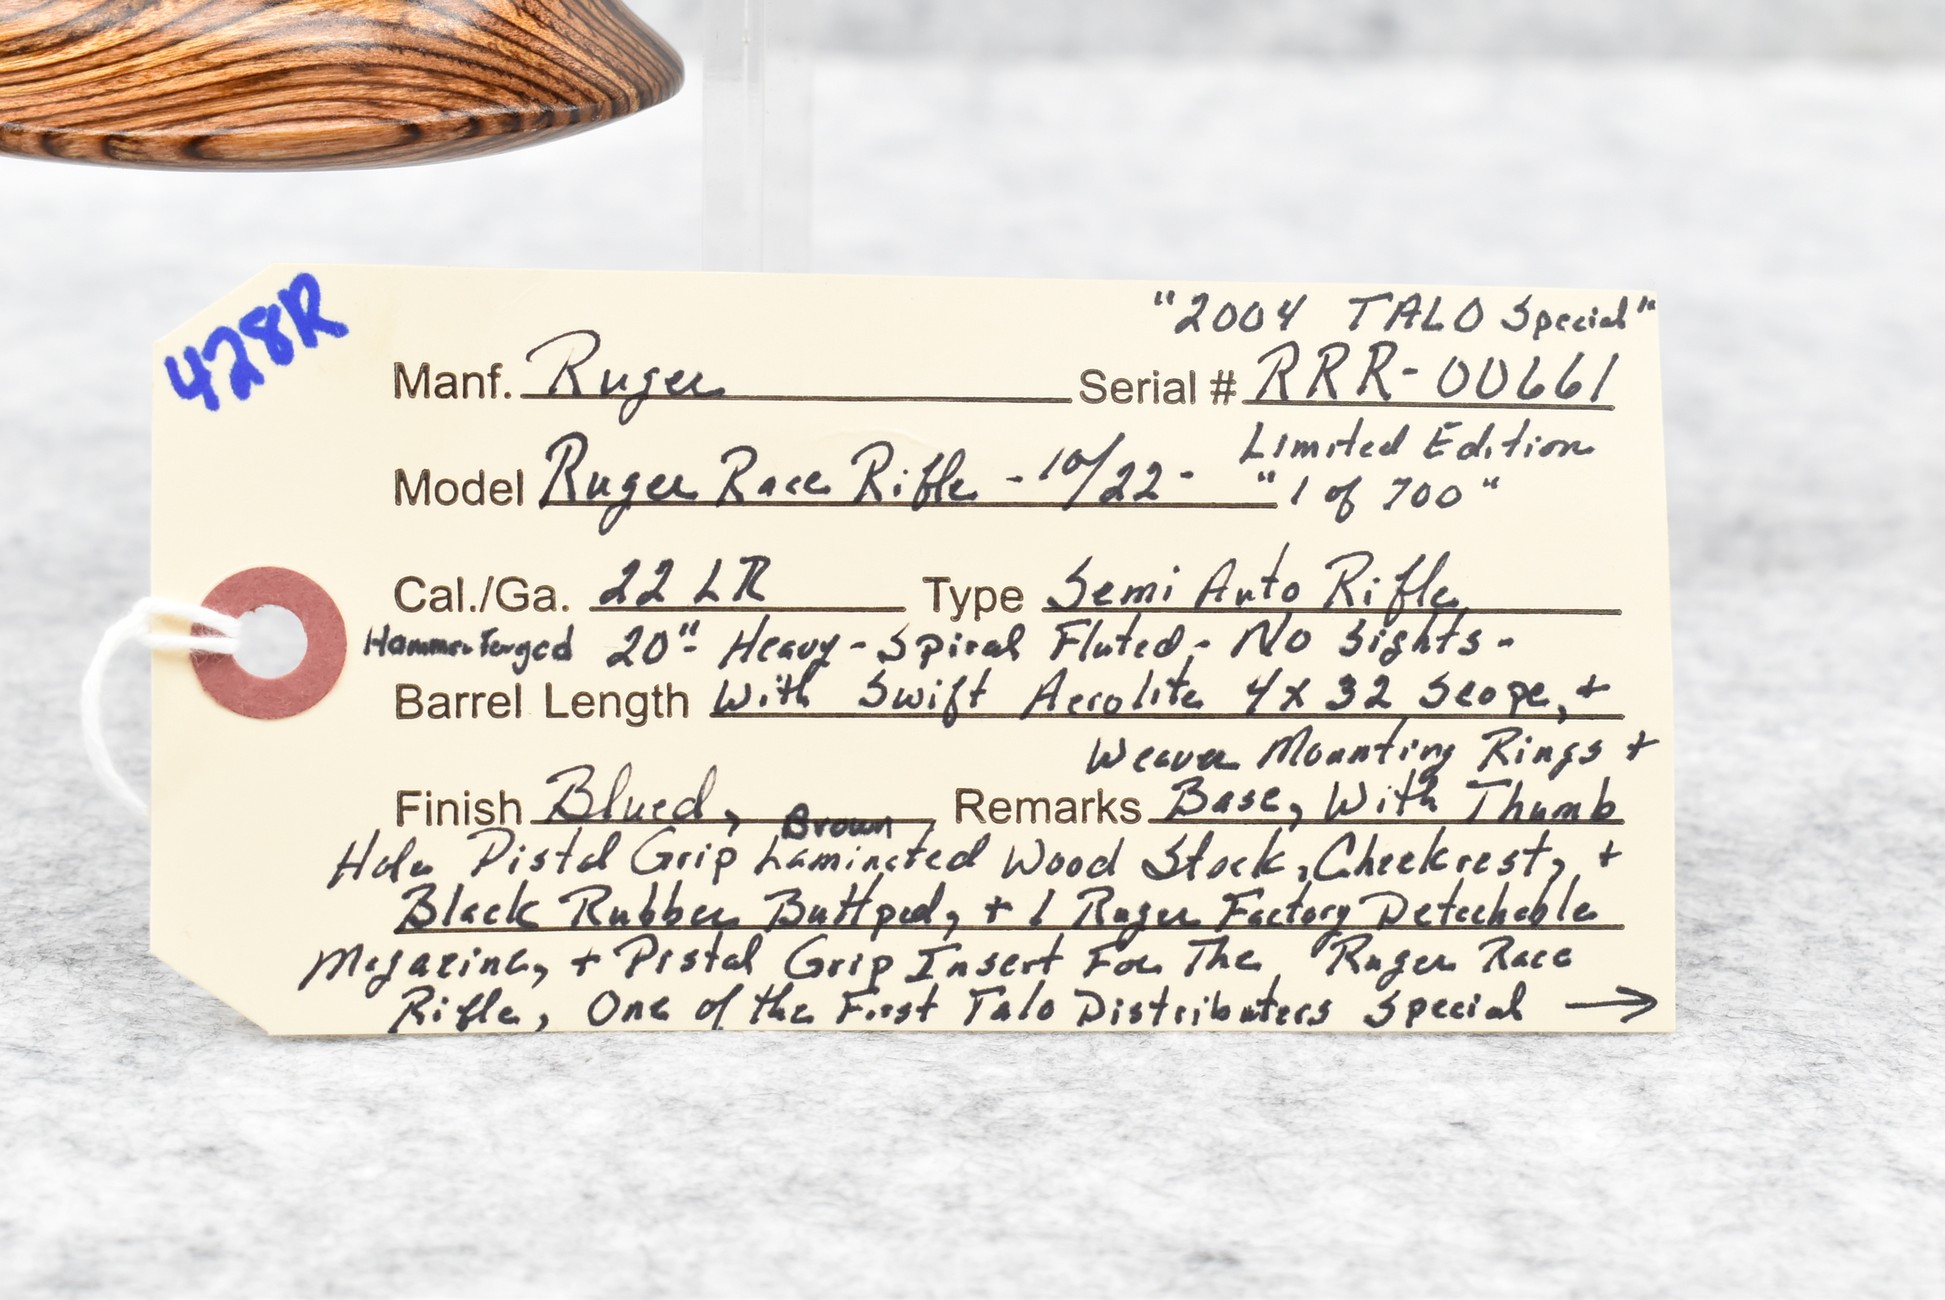 428R
"2004 TALO Special"
Manf. Ruger Serial # RRR-00661
Limited Edition
Model Ruger Race Rifle - 10/22 - "1 of 700"
Cal./Ga. 22 LR Type Semi Auto Rifle
Hammer Forged 20" Heavy - Spiral Fluted - No Sights -
Barrel Length With Swift Aerolite 4x32 Scope, +
Weaver Mounting Rings +
Finish Blued, Remarks Base, With Thumb
Brown
Hole Pistol Grip Laminated Wood Stock, Cheekrest, +
Black Rubber Buttpad, + 1 Ruger Factory Detachable
Magazine, + Pistol Grip Insert For The Ruger Race
Rifle, One of the First Talo Distributers Special →